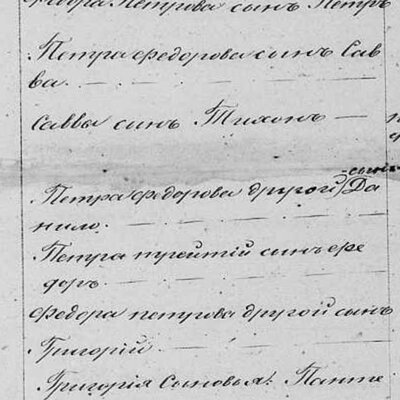 Федора Петрова сынъ Петръ
Петра Федорова сынъ Сав
ва.
Саввы сынъ Тихонъ —
сынъ
Петра Федорова другой Да
нило.
Петра третій сынъ Фе
доръ.
Федора Петрова другой сынъ
Григорій
Григорія Сыновья: Панте